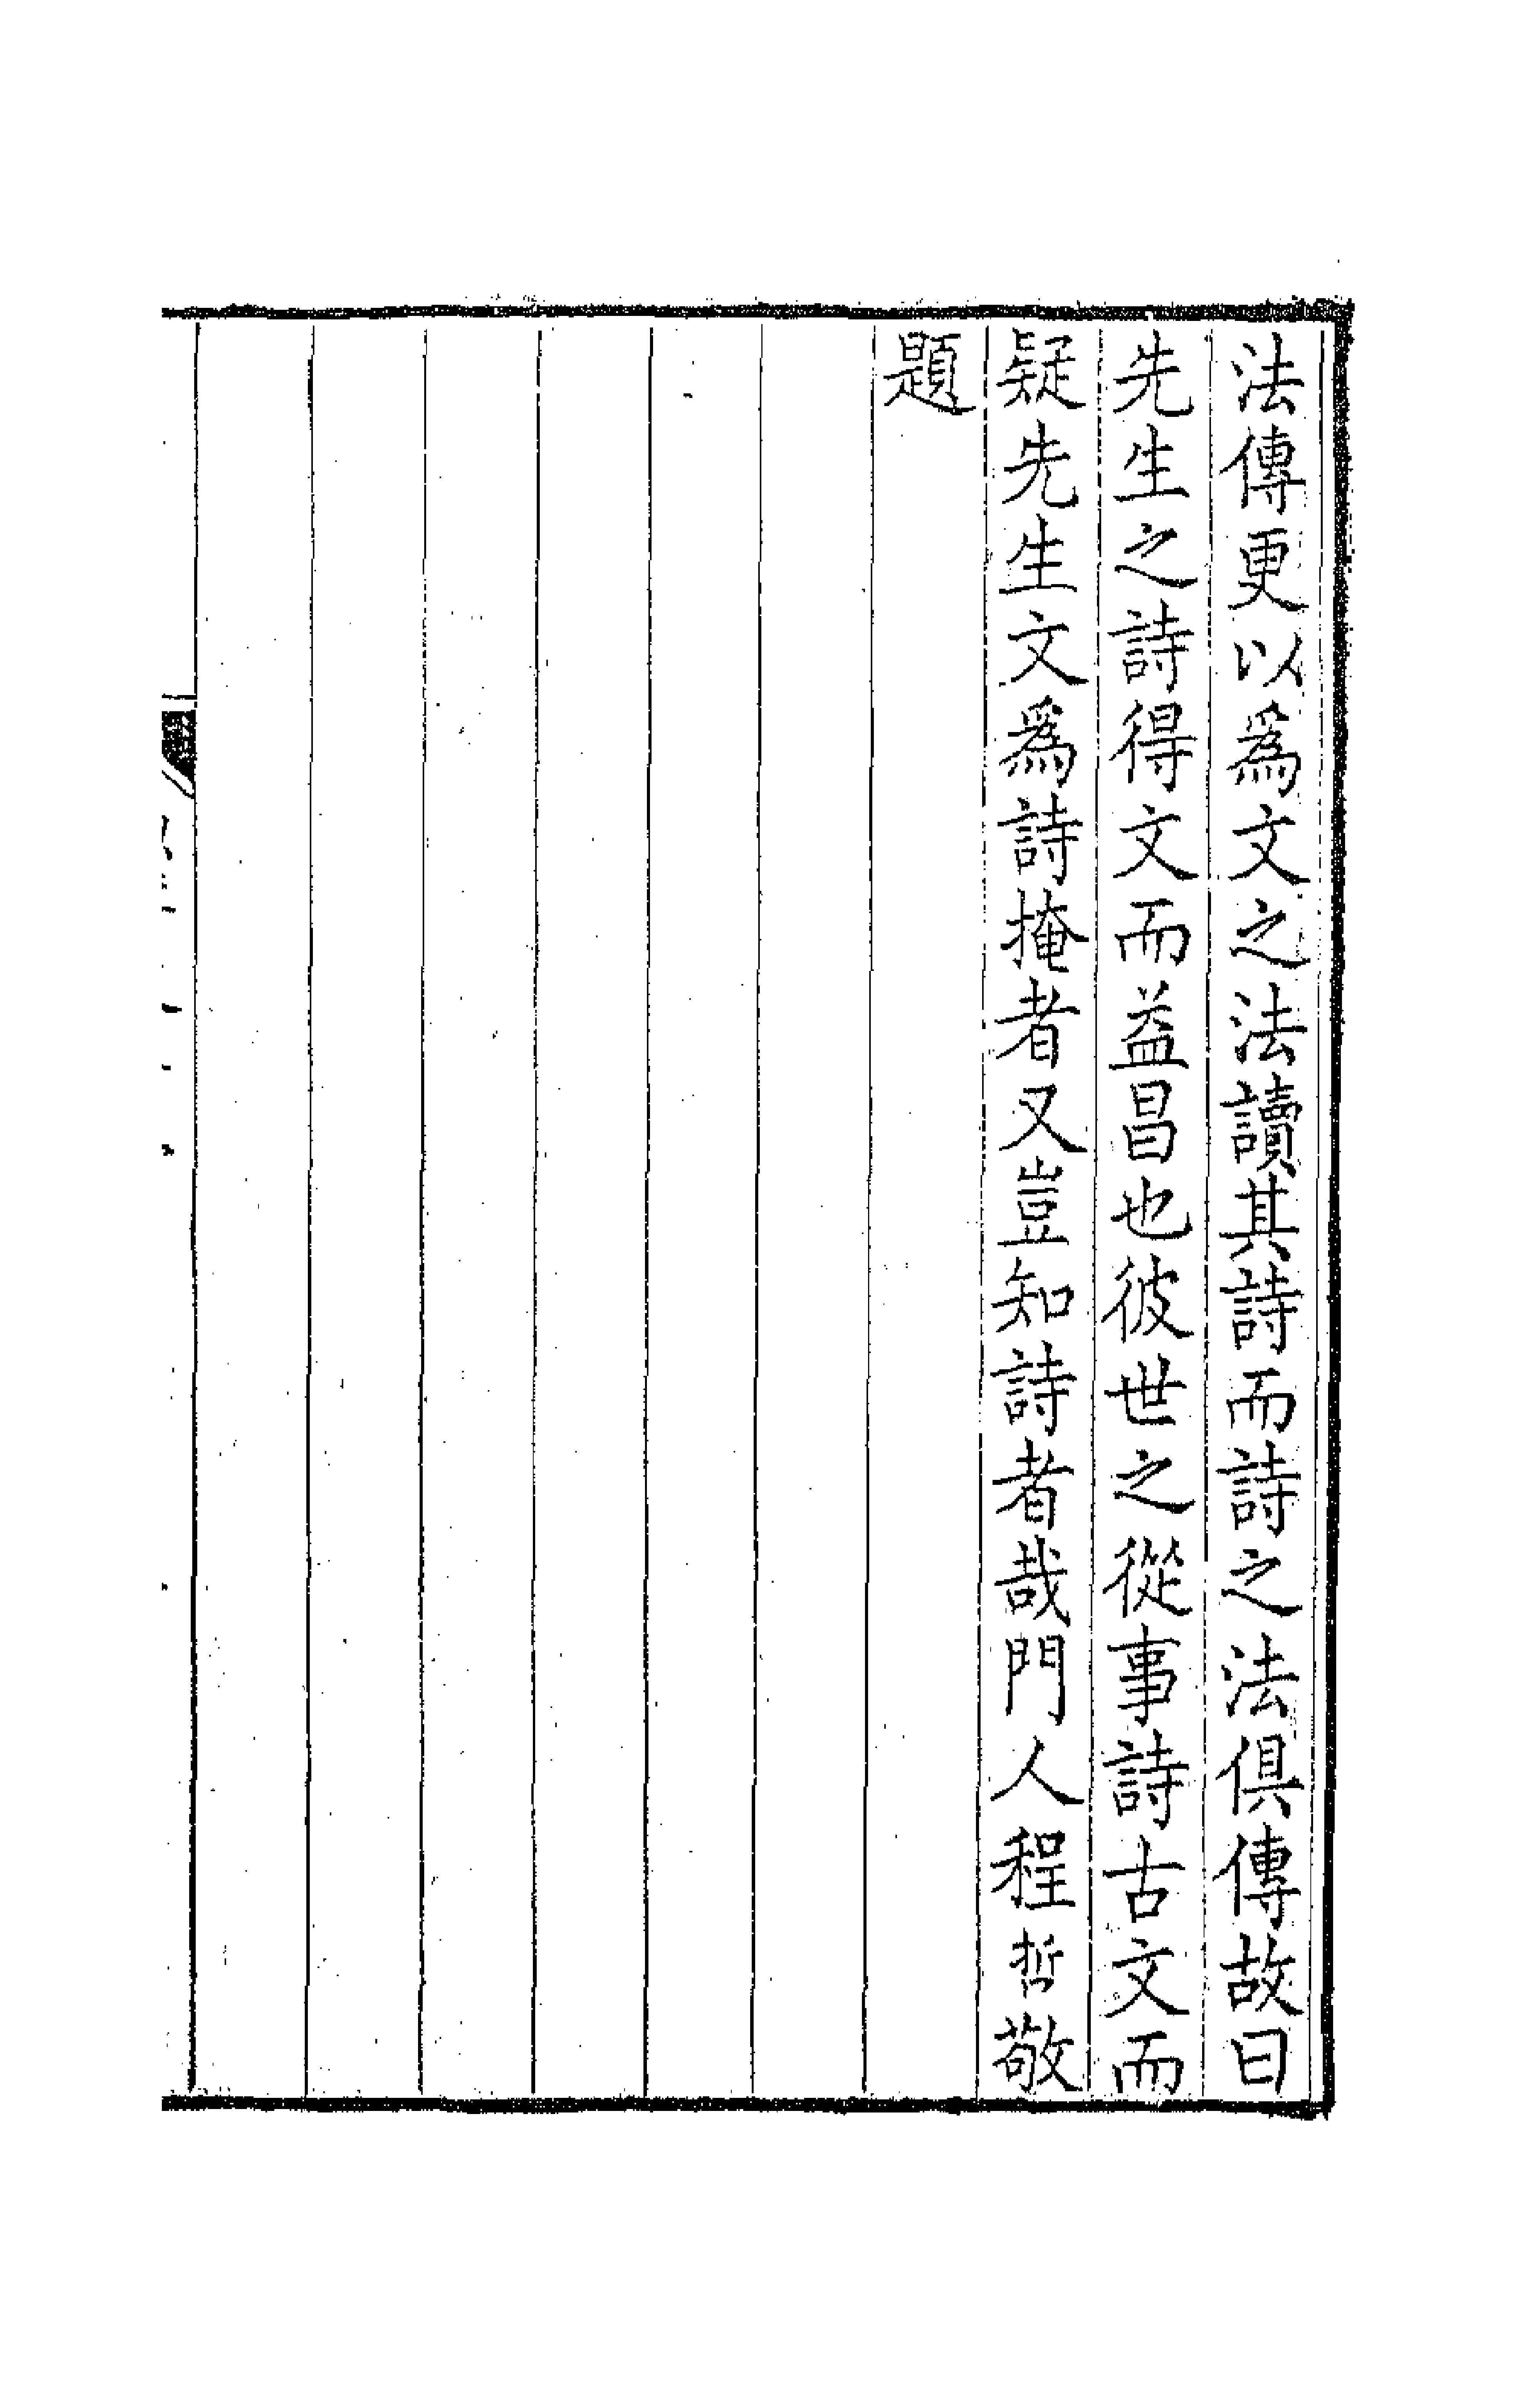 法傳更以爲文之法讀其詩而詩之法俱傳故曰
先生之詩得文而益昌也彼世之從事詩古文而
疑先生文爲詩掩者又豈知詩者哉門人程哲敬
題